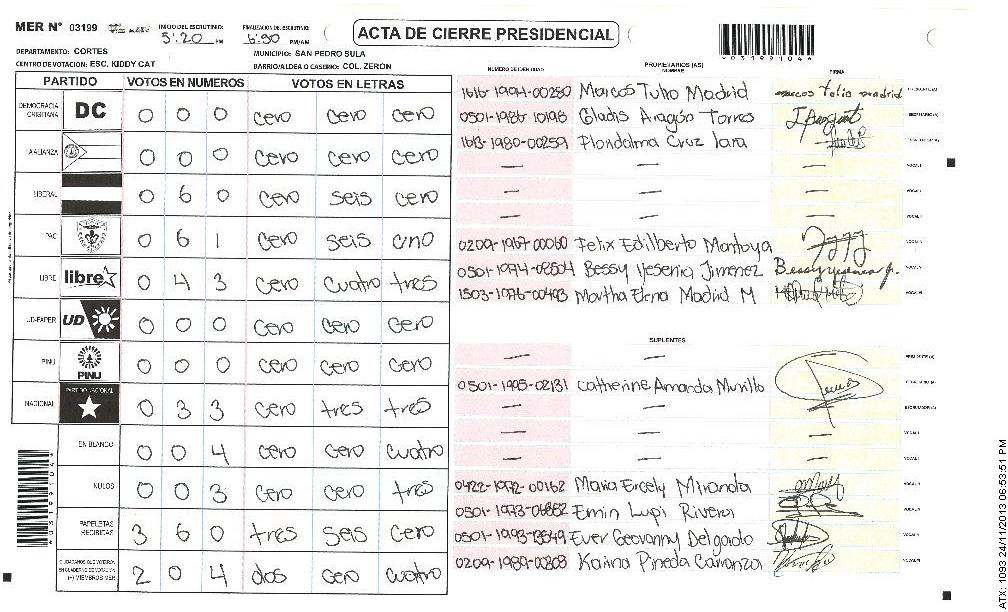 MER N° 03199
INICIO DEL ESCRUTINIO: 5:20 PM
FINALIZACION DEL ESCRUTINIO: 6:50 PM/AM
ACTA DE CIERRE PRESIDENCIAL
DEPARTAMENTO: CORTES
MUNICIPIO: SAN PEDRO SULA
CENTRO DE VOTACION: ESC. KIDDY CAT
BARRIO/ALDEA O CASERIO: COL. ZERON
PARTIDO VOTOS EN NUMEROS VOTOS EN LETRAS
DEMOCRACIA CRISTIANA DC 0 0 0 cero cero cero
ALIANZA 0 0 0 cero cero cero
LIBERAL 0 6 0 cero seis cero
PAC 0 6 1 cero seis uno
LIBRE libre 0 4 3 cero cuatro tres
UD-FAPER UD 0 0 0 cero cero cero
PINU PINU 0 0 0 cero cero cero
NACIONAL PARTIDO NACIONAL 0 3 3 cero tres tres
EN BLANCO 0 0 4 cero cero cuatro
NULOS 0 0 3 cero cero tres
PAPELETAS RECIBIDAS 3 6 0 tres seis cero
CIUDADANOS QUE VOTARON EN CUADERNO DE VOTACION (+) MIEMBROS MER 2 0 4 dos cero cuatro
PROPIETARIOS (AS)
NUMERO DE IDENTIDAD NOMBRE FIRMA
1616-1994-00280 Marcos Tulio Madrid marcos tolio madrid
0501-1986-10198 Gladis Aragón Torres
Flondalma Cruz Lara
— — —
— — —
— — —
0209-1967-00060 Felix Edilberto Montoya
0501-1974-08504 Bessy Yesenia Jimenez
1503-1976-00493 Martha Elena Madrid M
SUPLENTES
— —
0501-1985-02131 Catherine Amanda Murillo
— —
— — —
— — —
0422-1972-00162 Maria Ercely Miranda
0501-1973-06882 Emin Lupi Rivera
0501-1993-13549 Ever Geovanny Delgado
0209-1989-00808 Karina Pineda Carranza
03199104
ATX: 1093 24/11/2013 06:53:51 PM